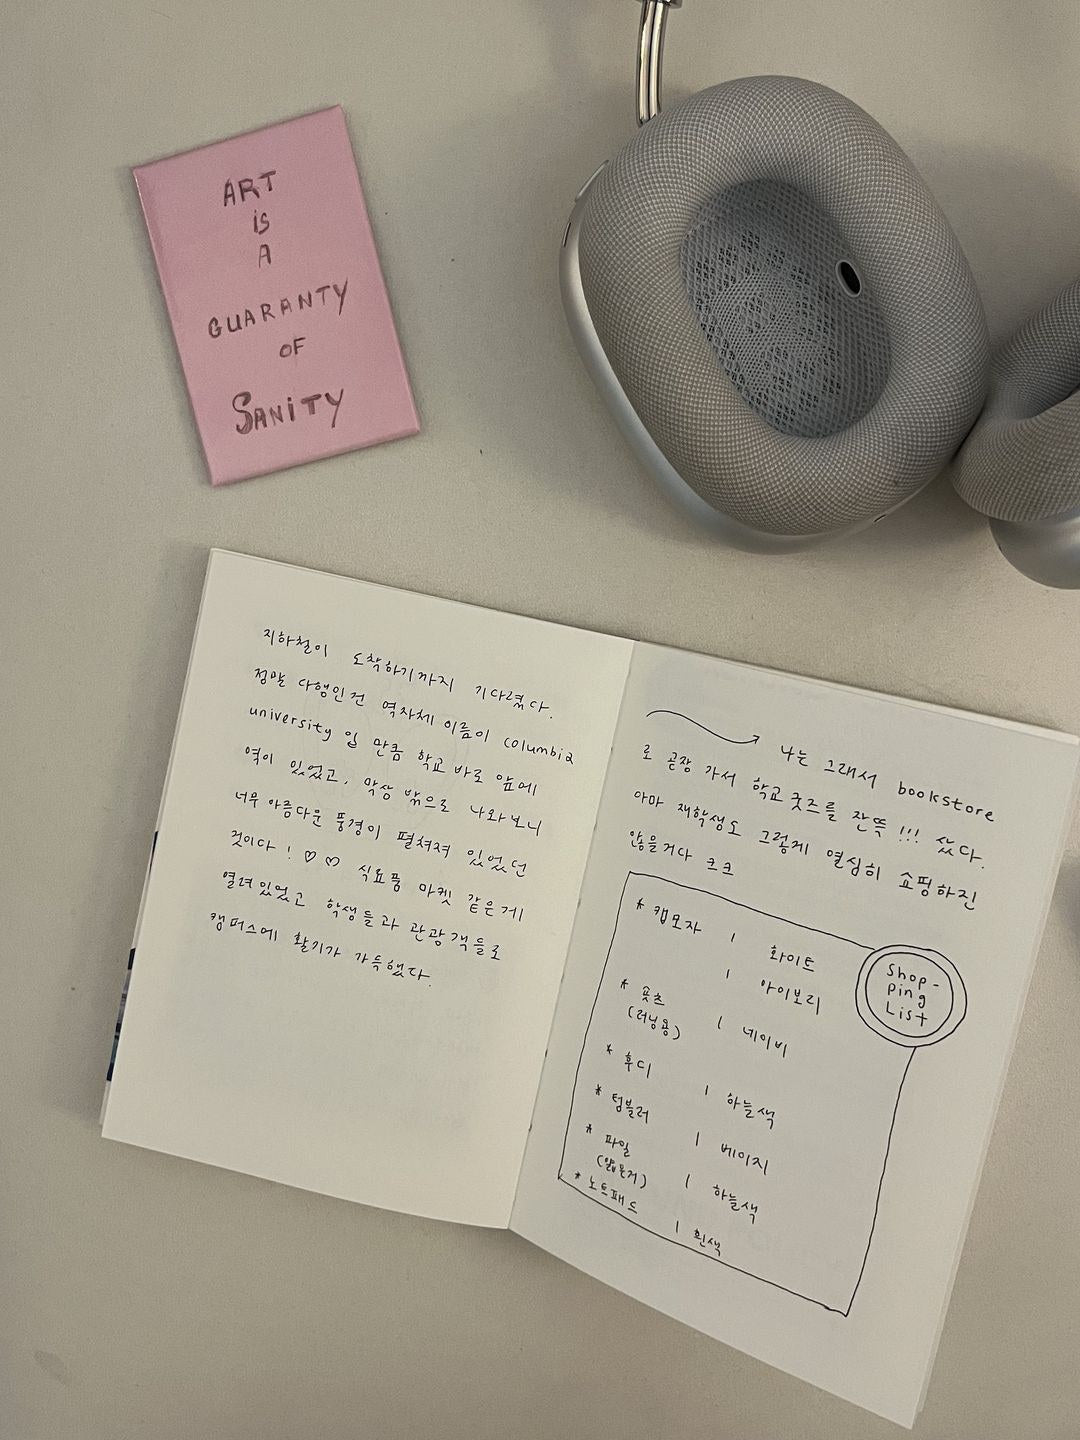 ART
is
A
GUARANTY
OF
SANITY
지하철이 도착하기까지 기다렸다.
정말 다행인건 역자체 이름이 columbia
university 인 만큼 학교 바로 앞에
역이 있었고, 막상 밖으로 나와보니
너무 아름다운 풍경이 펼쳐져 있었던
것이다! ♡♡ 식료품 마켓 같은게
열려있었고 학생들과 관광객들로
캠퍼스에 활기가 가득했다.
→ 나는 그래서 bookstore
로 곧장 가서 학교굿즈를 잔뜩!!! 샀다.
아마 재학생도 그렇게 열심히 쇼핑하진
않을거다 ㅋㅋ
Shop-
ping
List
* 캡모자 1 화이트
1 아이보리
* 숏츠 1 네이비
(러닝용)
* 후디 1 하늘색
* 텀블러 1 베이지
* 파일 1 하늘색
(얇은거)
* 노트패드 1 흰색